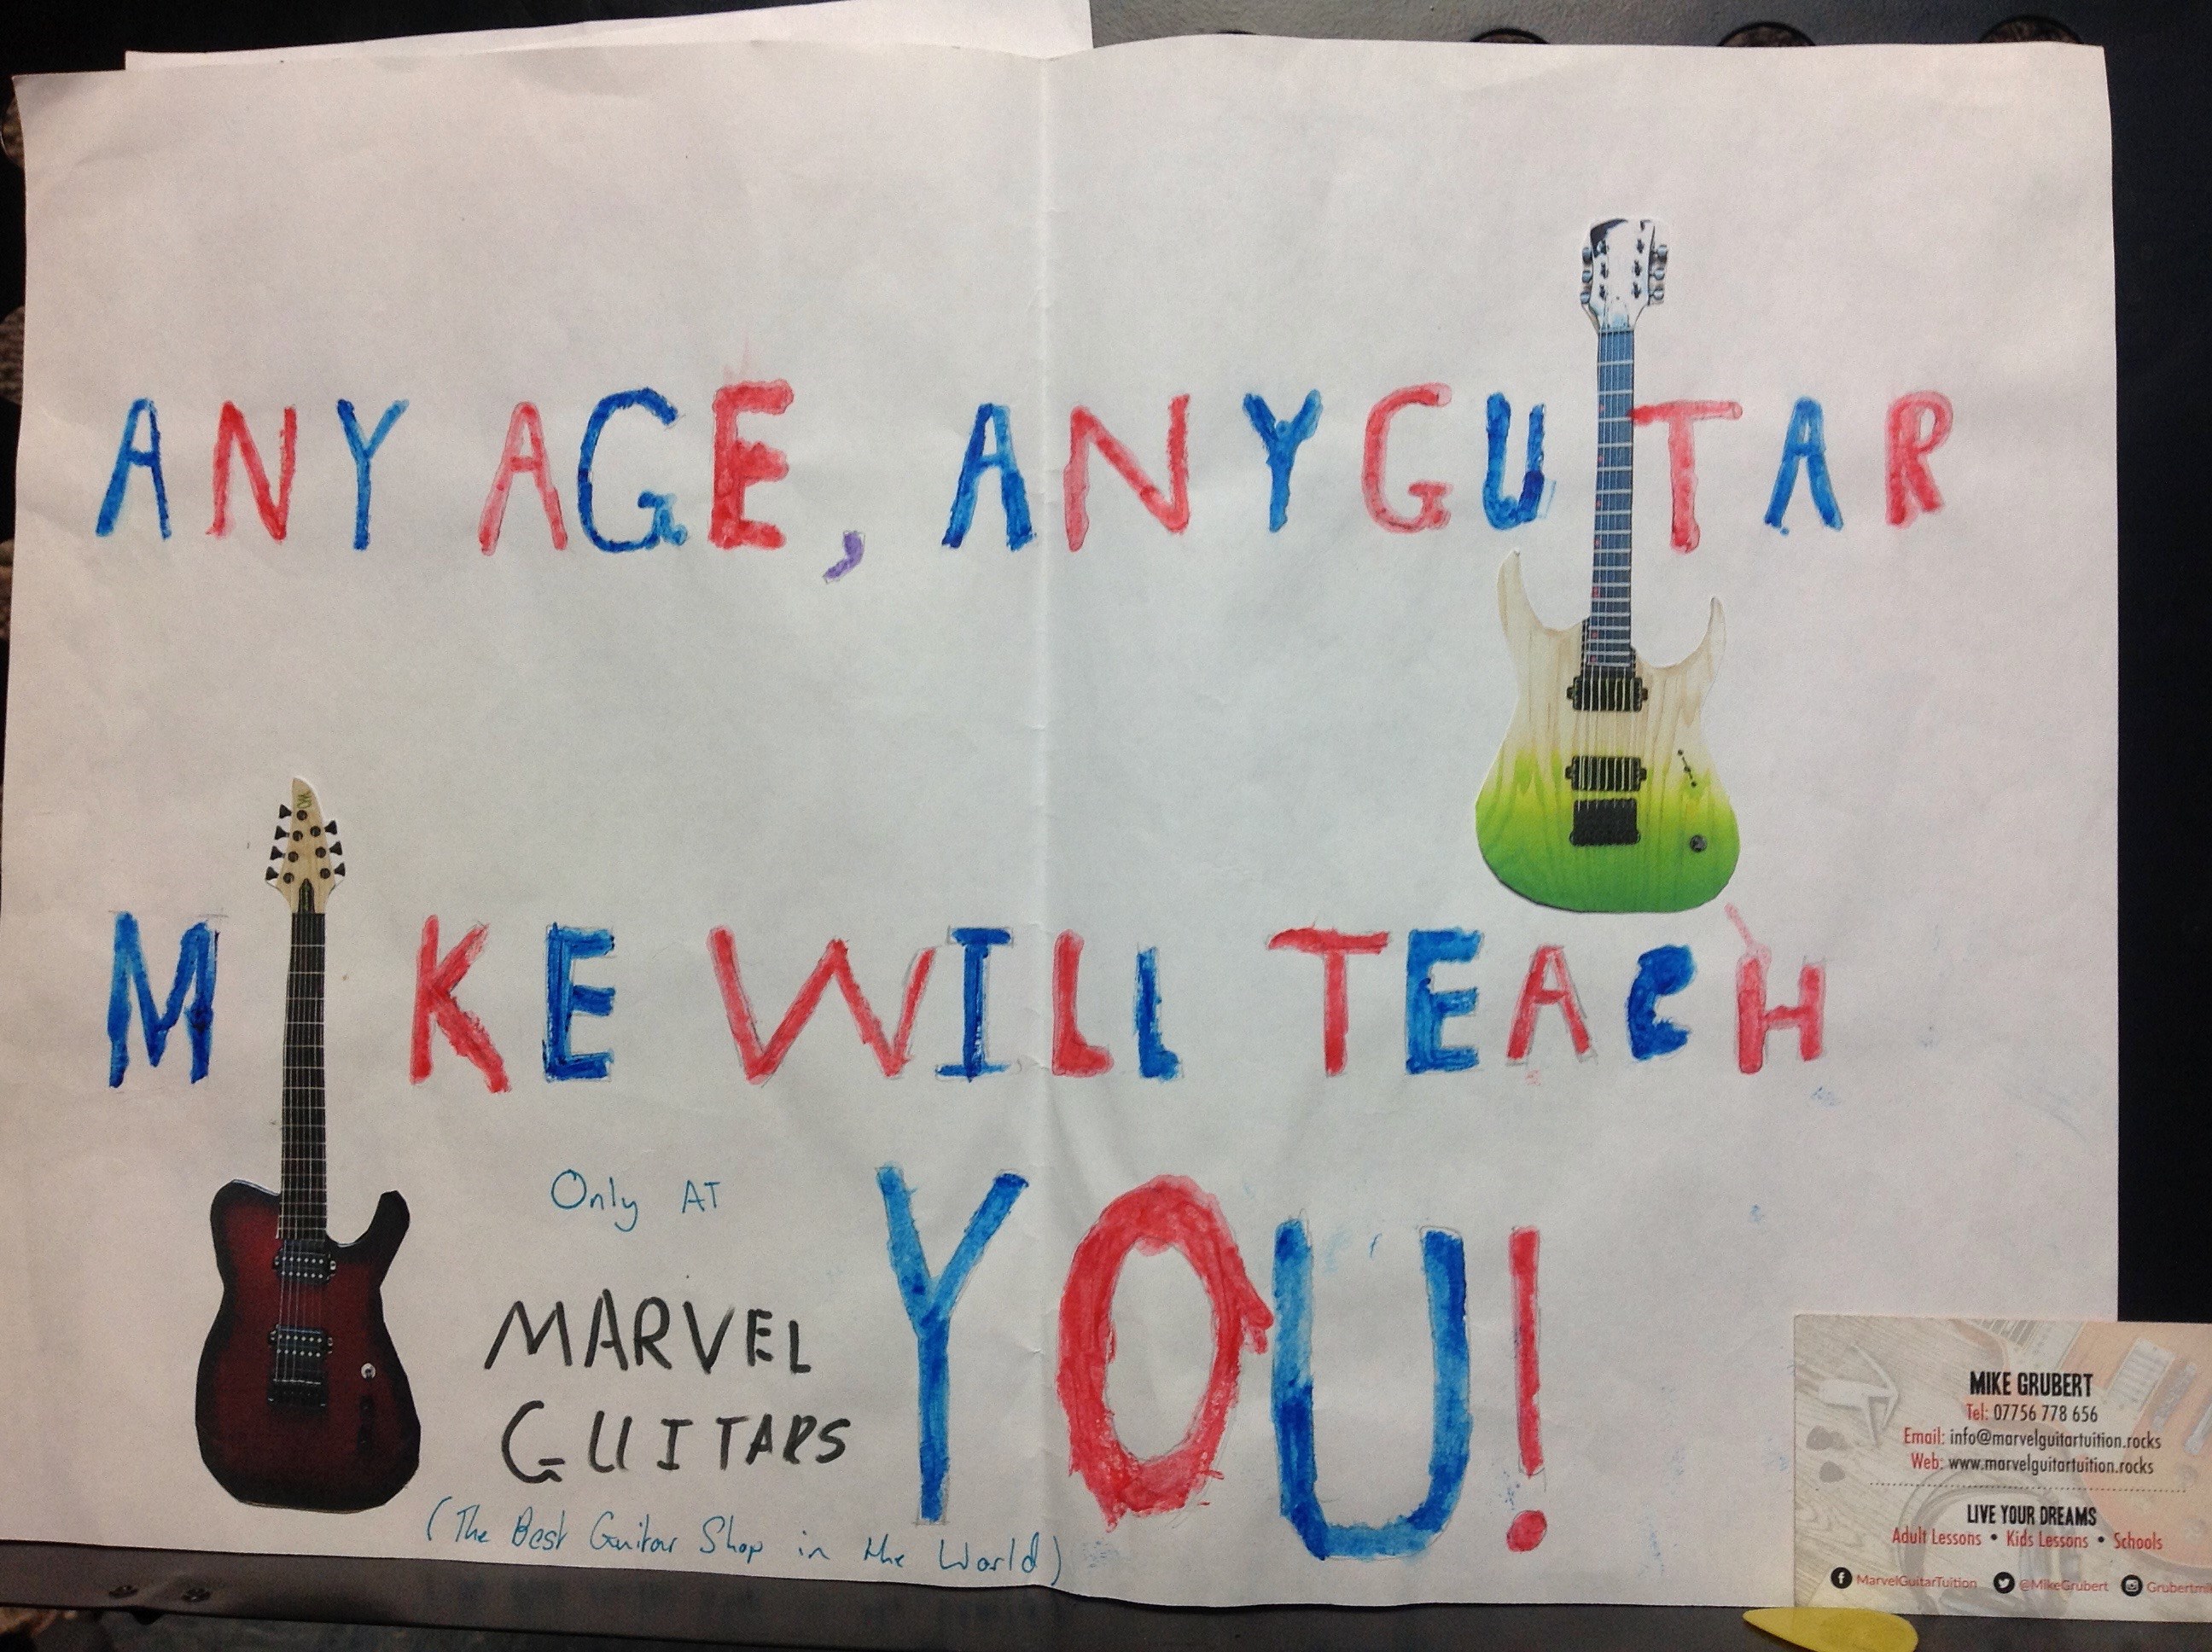 ANY AGE, ANY GUITAR
MIKE WILL TEACH
YOU!
Only AT
MARVEL
GUITARS
(The Best Guitar Shop in the World)
MIKE GRUBERT
Tel: 07756 778 656
Email: info@marvelguitartuition.rocks
Web: www.marvelguitartuition.rocks
LIVE YOUR DREAMS
Adult Lessons • Kids Lessons • Schools
MarvelGuitarTuition @MikeGrubert Grubertmik